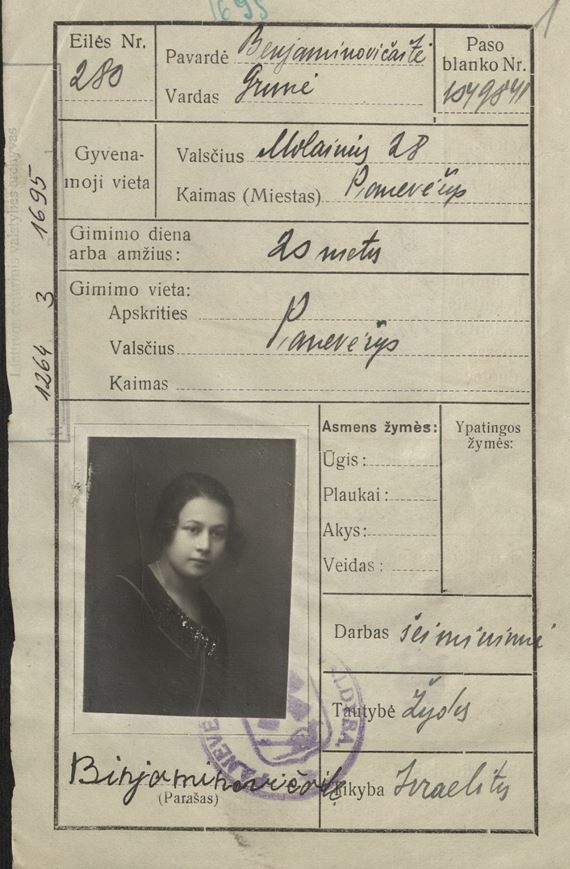 1695
1
Eilės Nr.
280
Pavardė Benjaminovičaitė
Vardas Grunė
Paso
blanko Nr.
Gyvena-
moji vieta
Valsčius Molainių 28
Kaimas (Miestas) Panevėžys
Gimimo diena
arba amžius: 20 metų
Gimimo vieta:
Apskrities
Valsčius Panevėžys
Kaimas
1264 3 1695
Asmens žymės:
Ūgis:
Plaukai:
Akys:
Veidas:
Ypatingos
žymės:
Darbas šeimininkė
Tautybė Žydų
Tikyba Izraelitų
(Parašas)